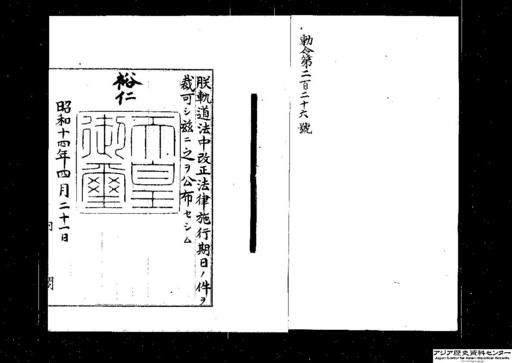 勅令第二百二十六號
朕軌道法中改正法律施行期日ノ件ヲ
裁可シ茲ニ之ヲ公布セシム
裕仁
天皇
御璽
昭和十四年四月二十一日
内閣
アジア歴史資料センター
Japan Center for Asian Historical Records